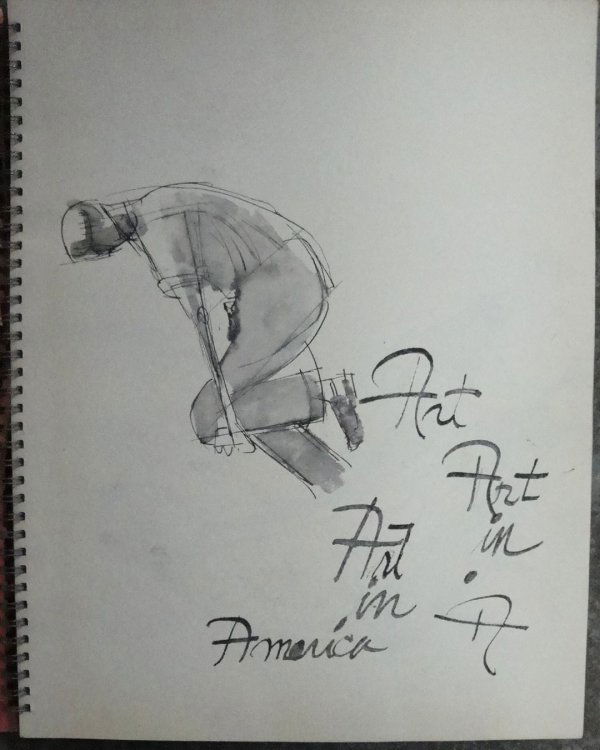 Art
Art
in
A
Art
in
America